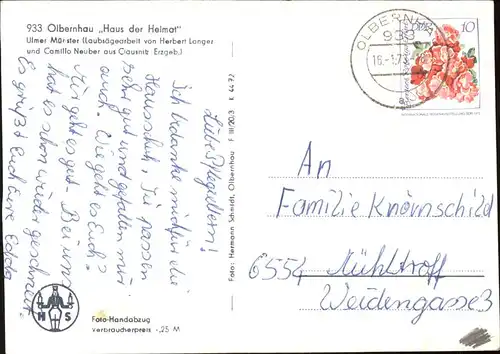 933 Olbernhau „Haus der Heimat"
Ulmer Münster (Laubsägearbeit von Herbert Langer
und Camillo Neuber aus Clausnitz Erzgeb.)
Liebe Pflegeltern!
Ich bedanke mich für die
Hausschuh. Sie passen
sehr gut und gefallen mir
auch. Wie geht es Euch?
Mir geht es gut. Bei uns
hat es schon wieder geschneit.
Es grüßt Euch Eure
Foto: Hermann Schmidt, Olbernhau F III/20/3 K 44 72
H S
Foto-Handabzug
Verbraucherpreis -,25 M
OLBERNHAU
933
16.-1.73
a
DDR
10
An
Familie Knörnschild
6554 Mühltroff
Weidengasse 3